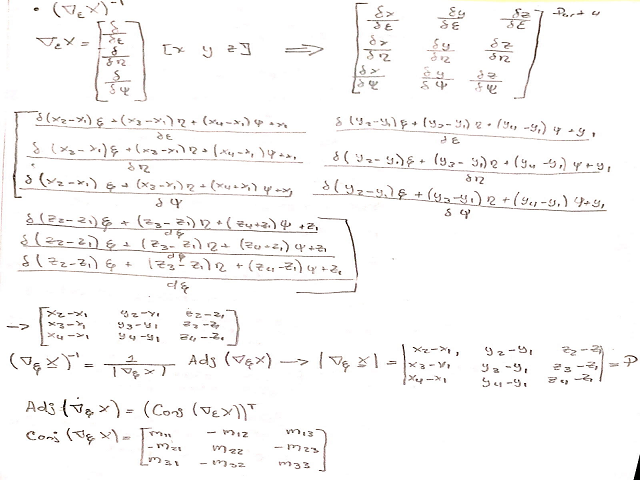 • (∇ξ X)⁻¹
∇ξ X = [δ/δξ δ/δη δ/δψ] [x y z] ⟹ [δx/δξ δy/δξ δz/δξ
δx/δη δy/δη δz/δη
δx/δψ δy/δψ δz/δψ]
[δ(x2-x1)ξ+(x3-x1)η+(x4-x1)ψ+x1/δξ δ(y2-y1)ξ+(y3-y1)η+(y4-y1)ψ+y1/δξ
δ(x2-x1)ξ+(x3-x1)η+(x4-x1)ψ+x1/δη δ(y2-y1)ξ+(y3-y1)η+(y4-y1)ψ+y1/δη
δ(x2-x1)ξ+(x3-x1)η+(x4+x1)ψ+x1/δψ δ(y2-y1)ξ+(y3-y1)η+(y4-y1)ψ+y1/δψ
δ(z2-z1)ξ+(z3-z1)η+(z4+z1)ψ+z1/dξ
δ(z2-z1)ξ+(z3-z1)η+(z4-z1)ψ+z1/dξ
δ(z2-z1)ξ+(z3-z1)η+(z4-z1)ψ+z1/dξ]
→ [x2-x1 y2-y1 z2-z1
x3-x1 y3-y1 z3-z1
x4-x1 y4-y1 z4-z1]
(∇ξ X)⁻¹ = 1/|∇ξ X| Adj (∇ξ X) → |∇ξ X| = |x2-x1 y2-y1 z2-z1
x3-x1 y3-y1 z3-z1
x4-x1 y4-y1 z4-z1| = P
Adj (∇ξ X) = (Conj (∇ξ X))ᵀ
Conj (∇ξ X) = [m11 -m12 m13
-m21 m22 -m23
m31 -m32 m33]